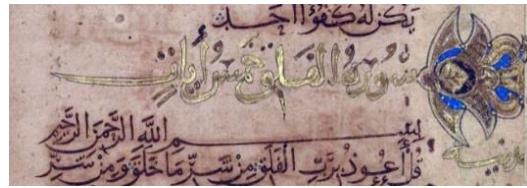 يَكُنْ لَهُ كُفُوًا أَحَدٌ
سورة الفلق خمس آيات
مدنية
بِسْمِ اللَّهِ الرَّحْمَنِ الرَّحِيمِ
قُلْ أَعُوذُ بِرَبِّ الْفَلَقِ مِنْ شَرِّ مَا خَلَقَ وَمِنْ شَرِّ